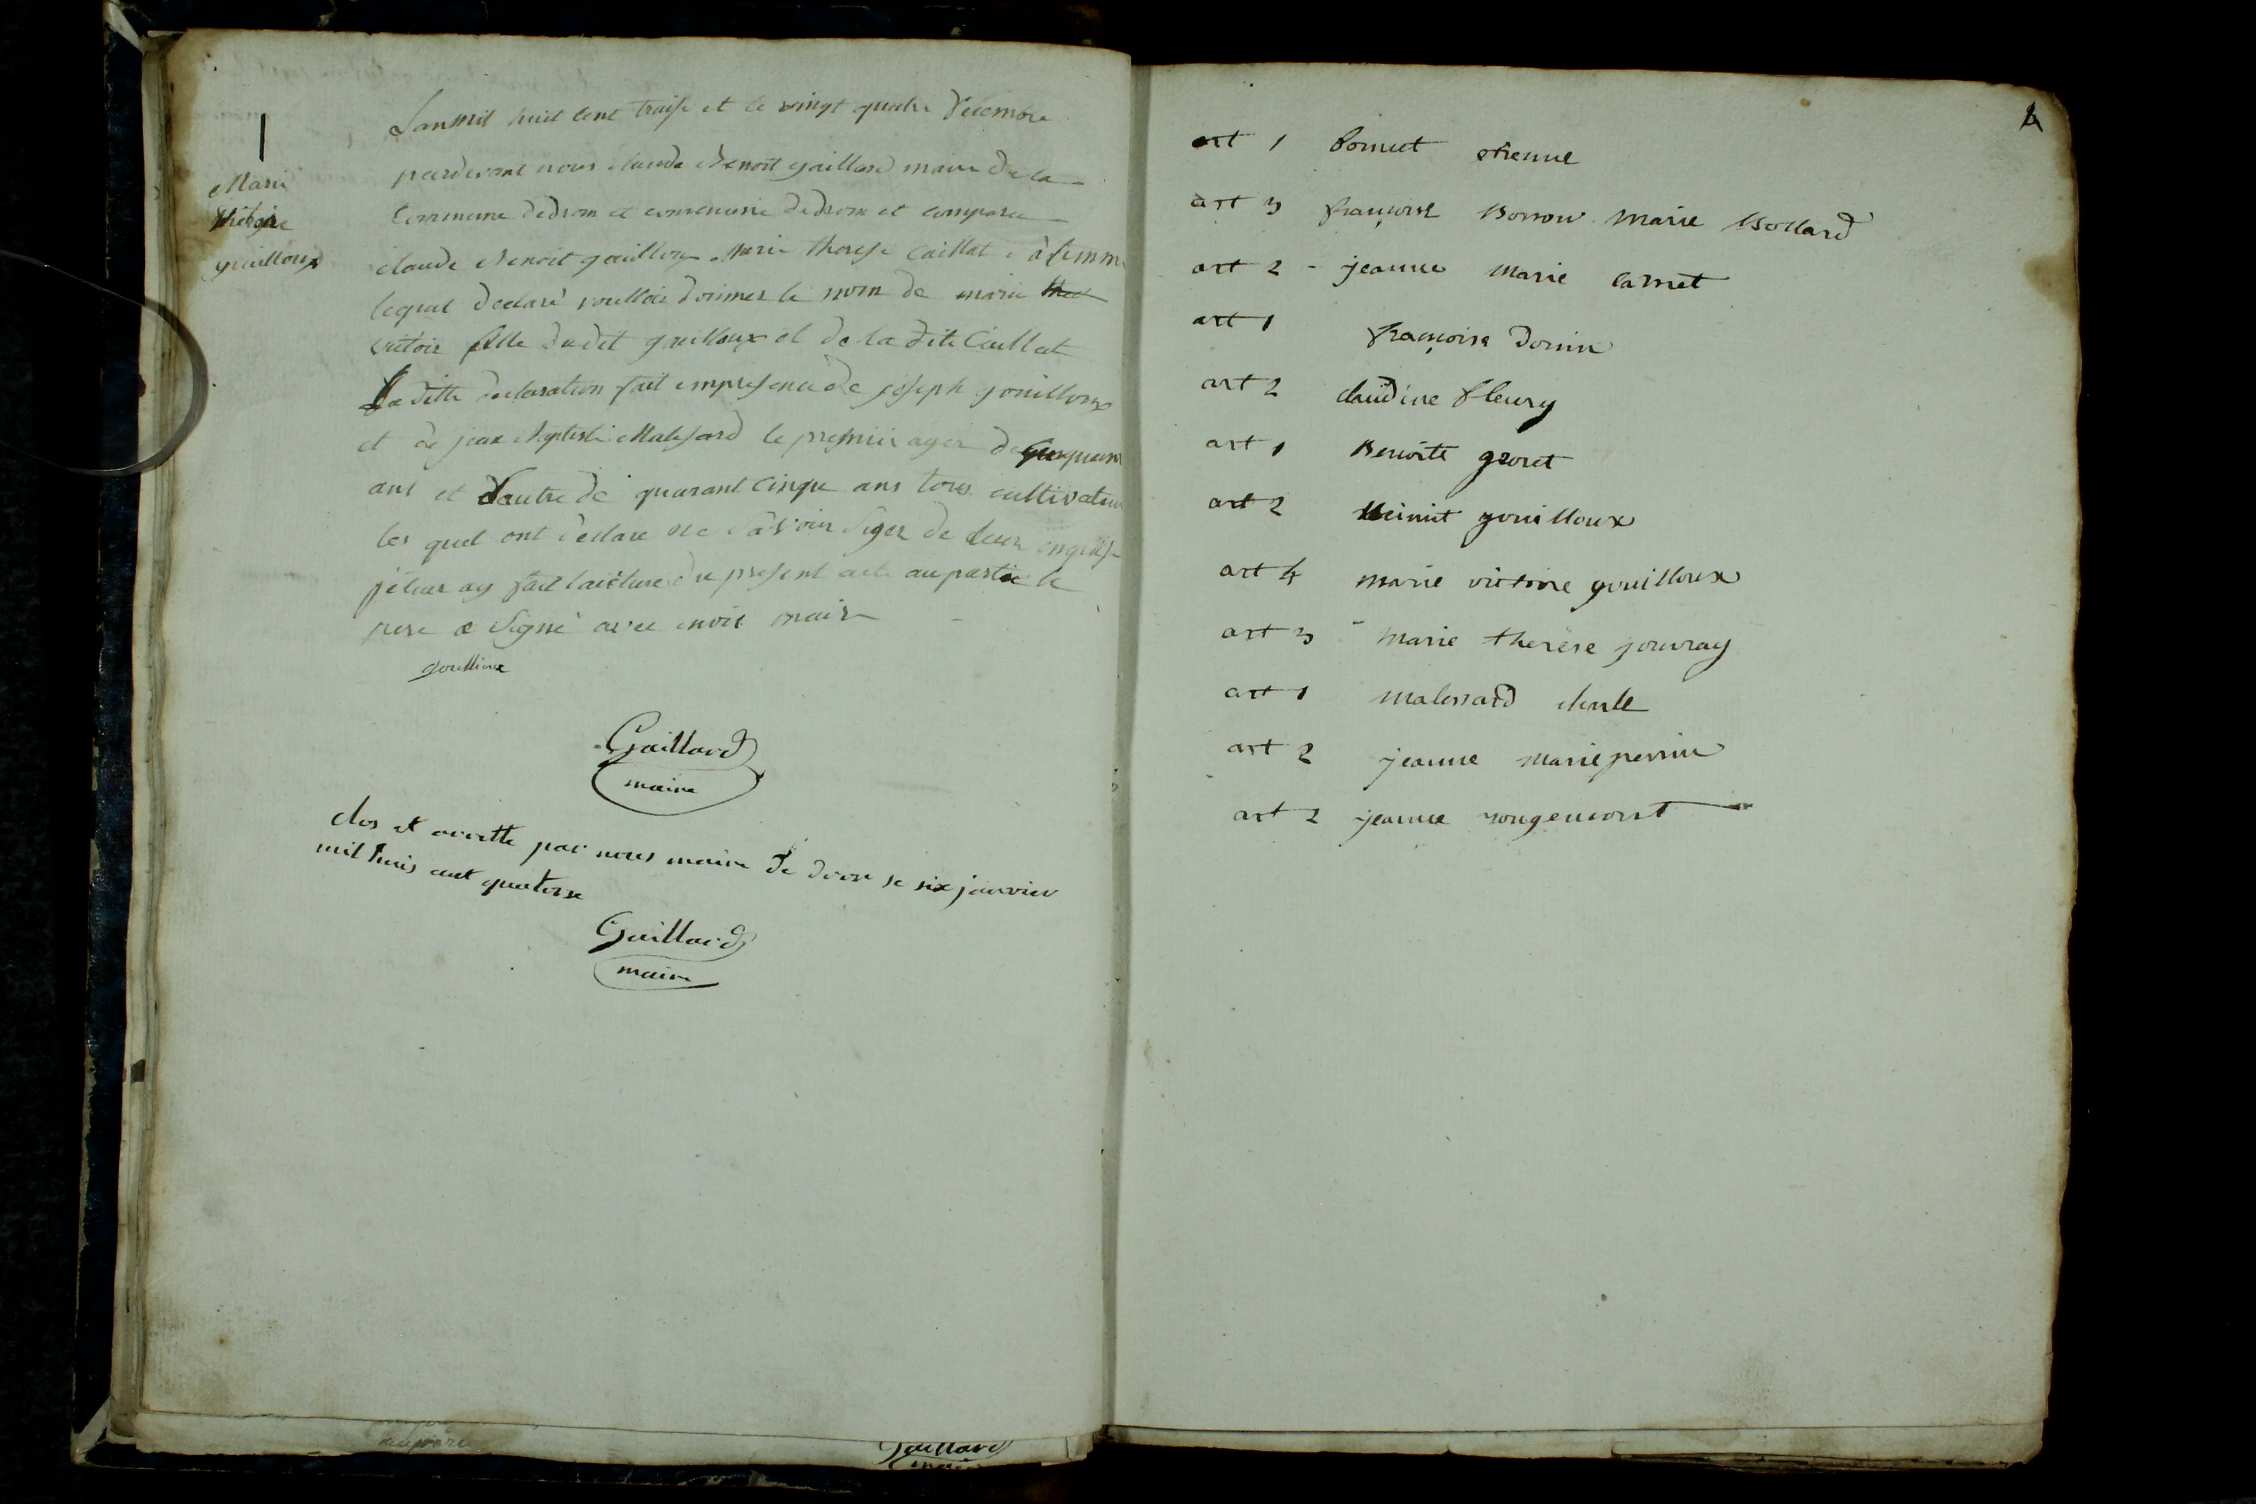 Marie
victoire
gouilloux
Lan mil huit cent traise et le vingt quatre Décembre
pardevant nous claude Benoit gaillard maire de la
Commune dedrom et comparu
claude Benoit gouilloux Marie therese Caillat à femme
lequel declaré voulloir donner le nom de marie
victoir fille dudit gouilloux et de la dite Caillat
la ditte declaration fait empresence de joseph gouilloux
et de jean Baptiste Malessard le premier ager de
ans et d'autre de quarant cinque ans tous cultivateur
les quel ont declare ne sàvoir signer de leur
je leur ay fait laicture du present acte au partie le
pere a Signé avec mois maire
gouilloux
Gaillard
maire
clos et arrette par nous maire de drom le six janvier
mil huis cent quatorse
Gaillard
maire
art 1 bornuet etienne
art 3 françoise Borron Marie Bollard
art 2 - jeanne Marie carnet
art 1 françoise Donin
art 2 claudine fleury
art 1 Benoite gzoret
art 2 Benoit gouilloux
art 4 marie victoire gouilloux
art 3 Marie therèse jouvray
art 1 malessard claude
art 2 jeanne marie perrin
art 2 jeanne rougemont
Gaillard
maire